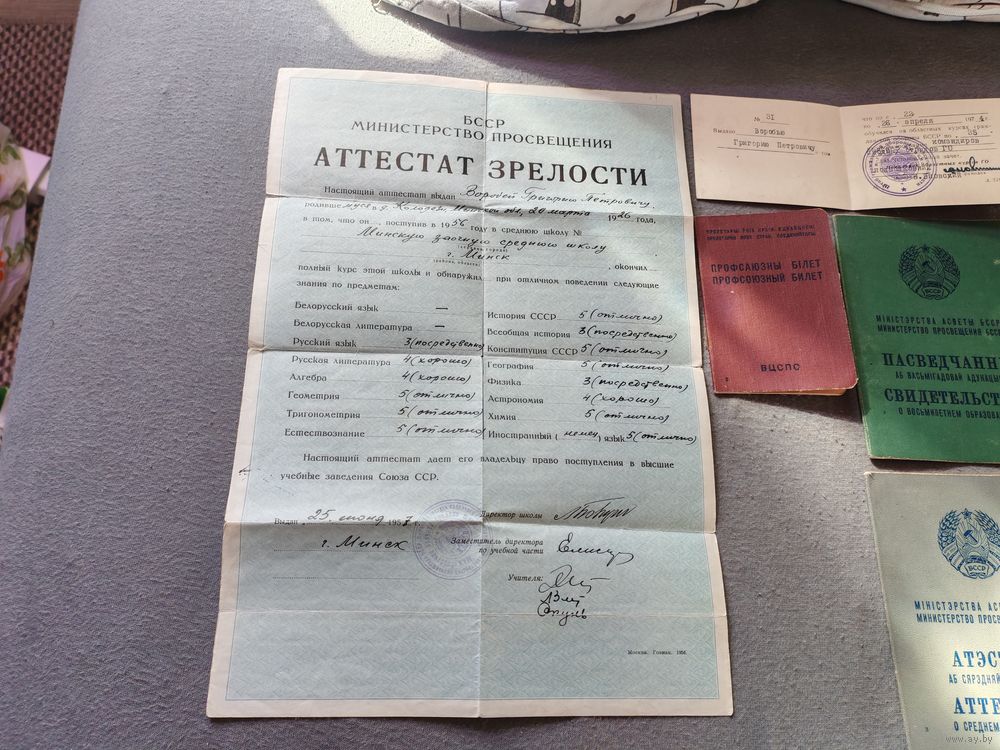 БССР
МИНИСТЕРСТВО ПРОСВЕЩЕНИЯ
АТТЕСТАТ ЗРЕЛОСТИ
Настоящий аттестат выдан Воробей Григорию Петровичу,
родившемуся в д. Минской обл., 20 марта 1926 года,
в том, что он, поступив в 1956 году в среднюю школу №
Минскую заочную среднюю школу
г. Минск
полный курс этой школы и обнаружил при отличном поведении следующие
, окончил
знания по предметам:
Белорусский язык —
Белорусская литература —
Русский язык 3 (посредственно)
Русская литература 4 (хорошо)
Алгебра 4 (хорошо)
Геометрия 5 (отлично)
Тригонометрия 5 (отлично)
Естествознание 5 (отлично)
История СССР 5 (отлично)
Всеобщая история 3 (посредственно)
Конституция СССР 5 (отлично)
География 5 (отлично)
Физика 3 (посредственно)
Астрономия 4 (хорошо)
Химия 5 (отлично)
Иностранный (немец) язык 5 (отлично)
Настоящий аттестат дает его владельцу право поступления в высшие
учебные заведения Союза ССР.
Выдан 25 июня 1957 г.
г. Минск
Директор школы
Заместитель директора
по учебной части
Учителя:
Москва. Гознак. 1956.
№ 31
Выдано Воробью
Григорию Петровичу
что он с 22
по 26 апреля 197
обучался на областных курсах граж
обороны БССР по
командиров
ПРАФСАЮЗНЫ БІЛЕТ
ПРОФСОЮЗНЫЙ БИЛЕТ
ВЦСПС
БССР
МІНІСТЭРСТВА АСВЕТЫ БССР
МИНИСТЕРСТВО ПРОСВЕЩЕНИЯ БСС
ПАСВЕДЧАНН
АБ ВАСЬМІГАДОВАЙ АДУКАЦЫ
СВИДЕТЕЛЬСТ
О ВОСЬМИЛЕТНЕМ ОБРАЗОВА
БССР
МІНІСТЭРСТВА АС
МИНИСТЕРСТВО ПРОСВ
АТЭС
АБ СЯРЭДНЯЙ
АТТЕ
О СРЕДНЕМ
www.ay.by